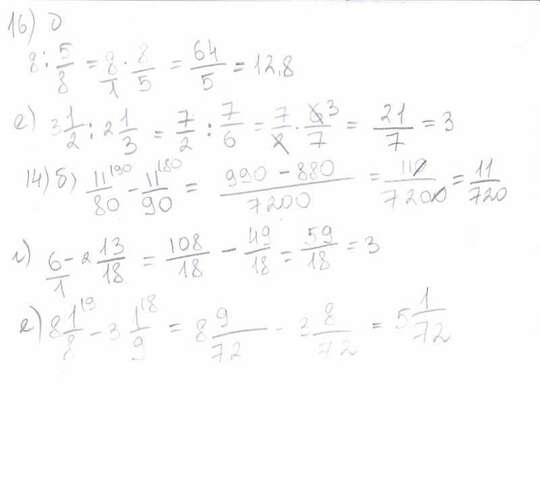 16) 0
8 : 5/8 = 8/1 · 8/5 = 64/5 = 12,8
е) 3 1/2 : 2 1/3 = 7/2 : 7/6 = 7/2 · 6³/7 = 21/7 = 3
14) б) 11^(90)/80 - 11^(80)/90 = (990 - 880)/7200 = 110/7200 = 11/720
г) 6/1 - 2 13/18 = 108/18 - 49/18 = 59/18 = 3
е) 8 1^(9)/8 - 3 1^(8)/9 = 8 9/72 - 3 8/72 = 5 1/72